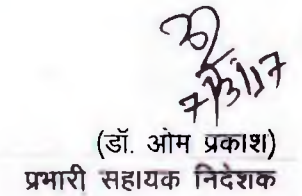 7/3/17
(डॉ. ओम प्रकाश)
प्रभारी सहायक निदेशक